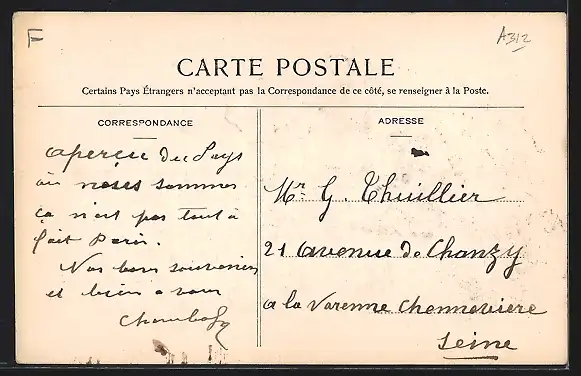 F
A312
CARTE POSTALE
Certains Pays Étrangers n'acceptent pas la Correspondance de ce côté, se renseigner à la Poste.
CORRESPONDANCE
aperçu du Pays
où nous sommes
ça n'est pas tout à
fait Paris.
Nos bons souvenirs
et bien à vous
ADRESSE
Mr G. Thuillier
21 avenue de Chanzy
a la Varenne Chennevière
Seine